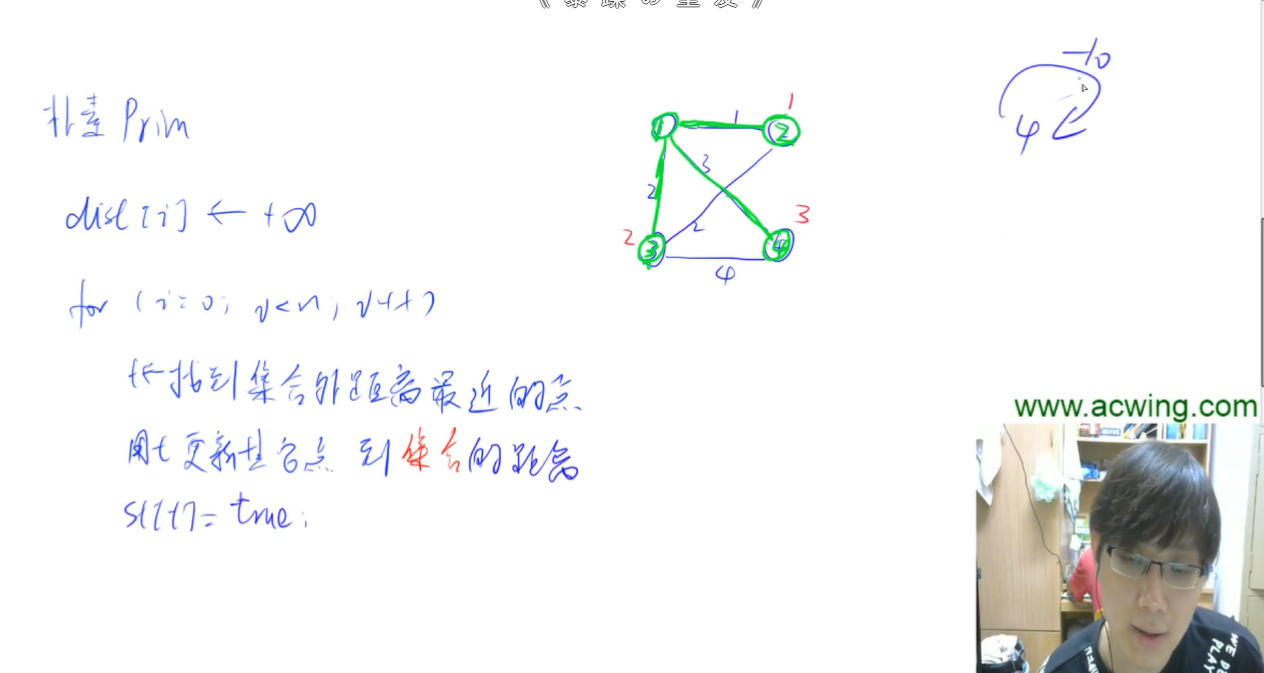 朴素 Prim
dist[i] ← +∞
for (i=0; i<n; i++)
t←找到集合外距离最近的点
用t更新其它点到集合的距离
st[t]=true;
1
1
1
2
3
2
3
2
2
3
4
4
-10
4
www.acwing.com